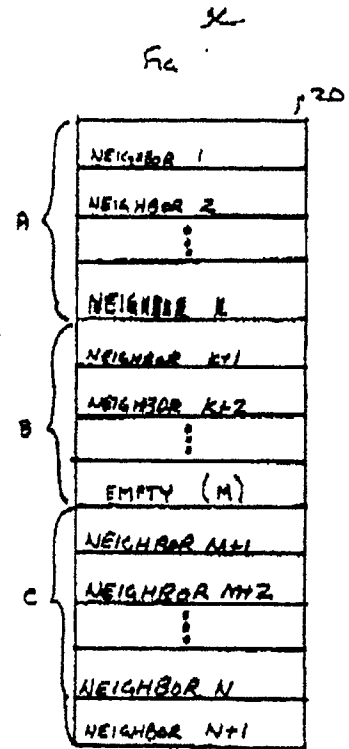 Fig
20
A
NEIGHBOR 1
NEIGHBOR 2
NEIGHBOR K
B
NEIGHBOR K+1
NEIGHBOR K+2
EMPTY (M)
C
NEIGHBOR M+1
NEIGHBOR M+2
NEIGHBOR N
NEIGHBOR N+1